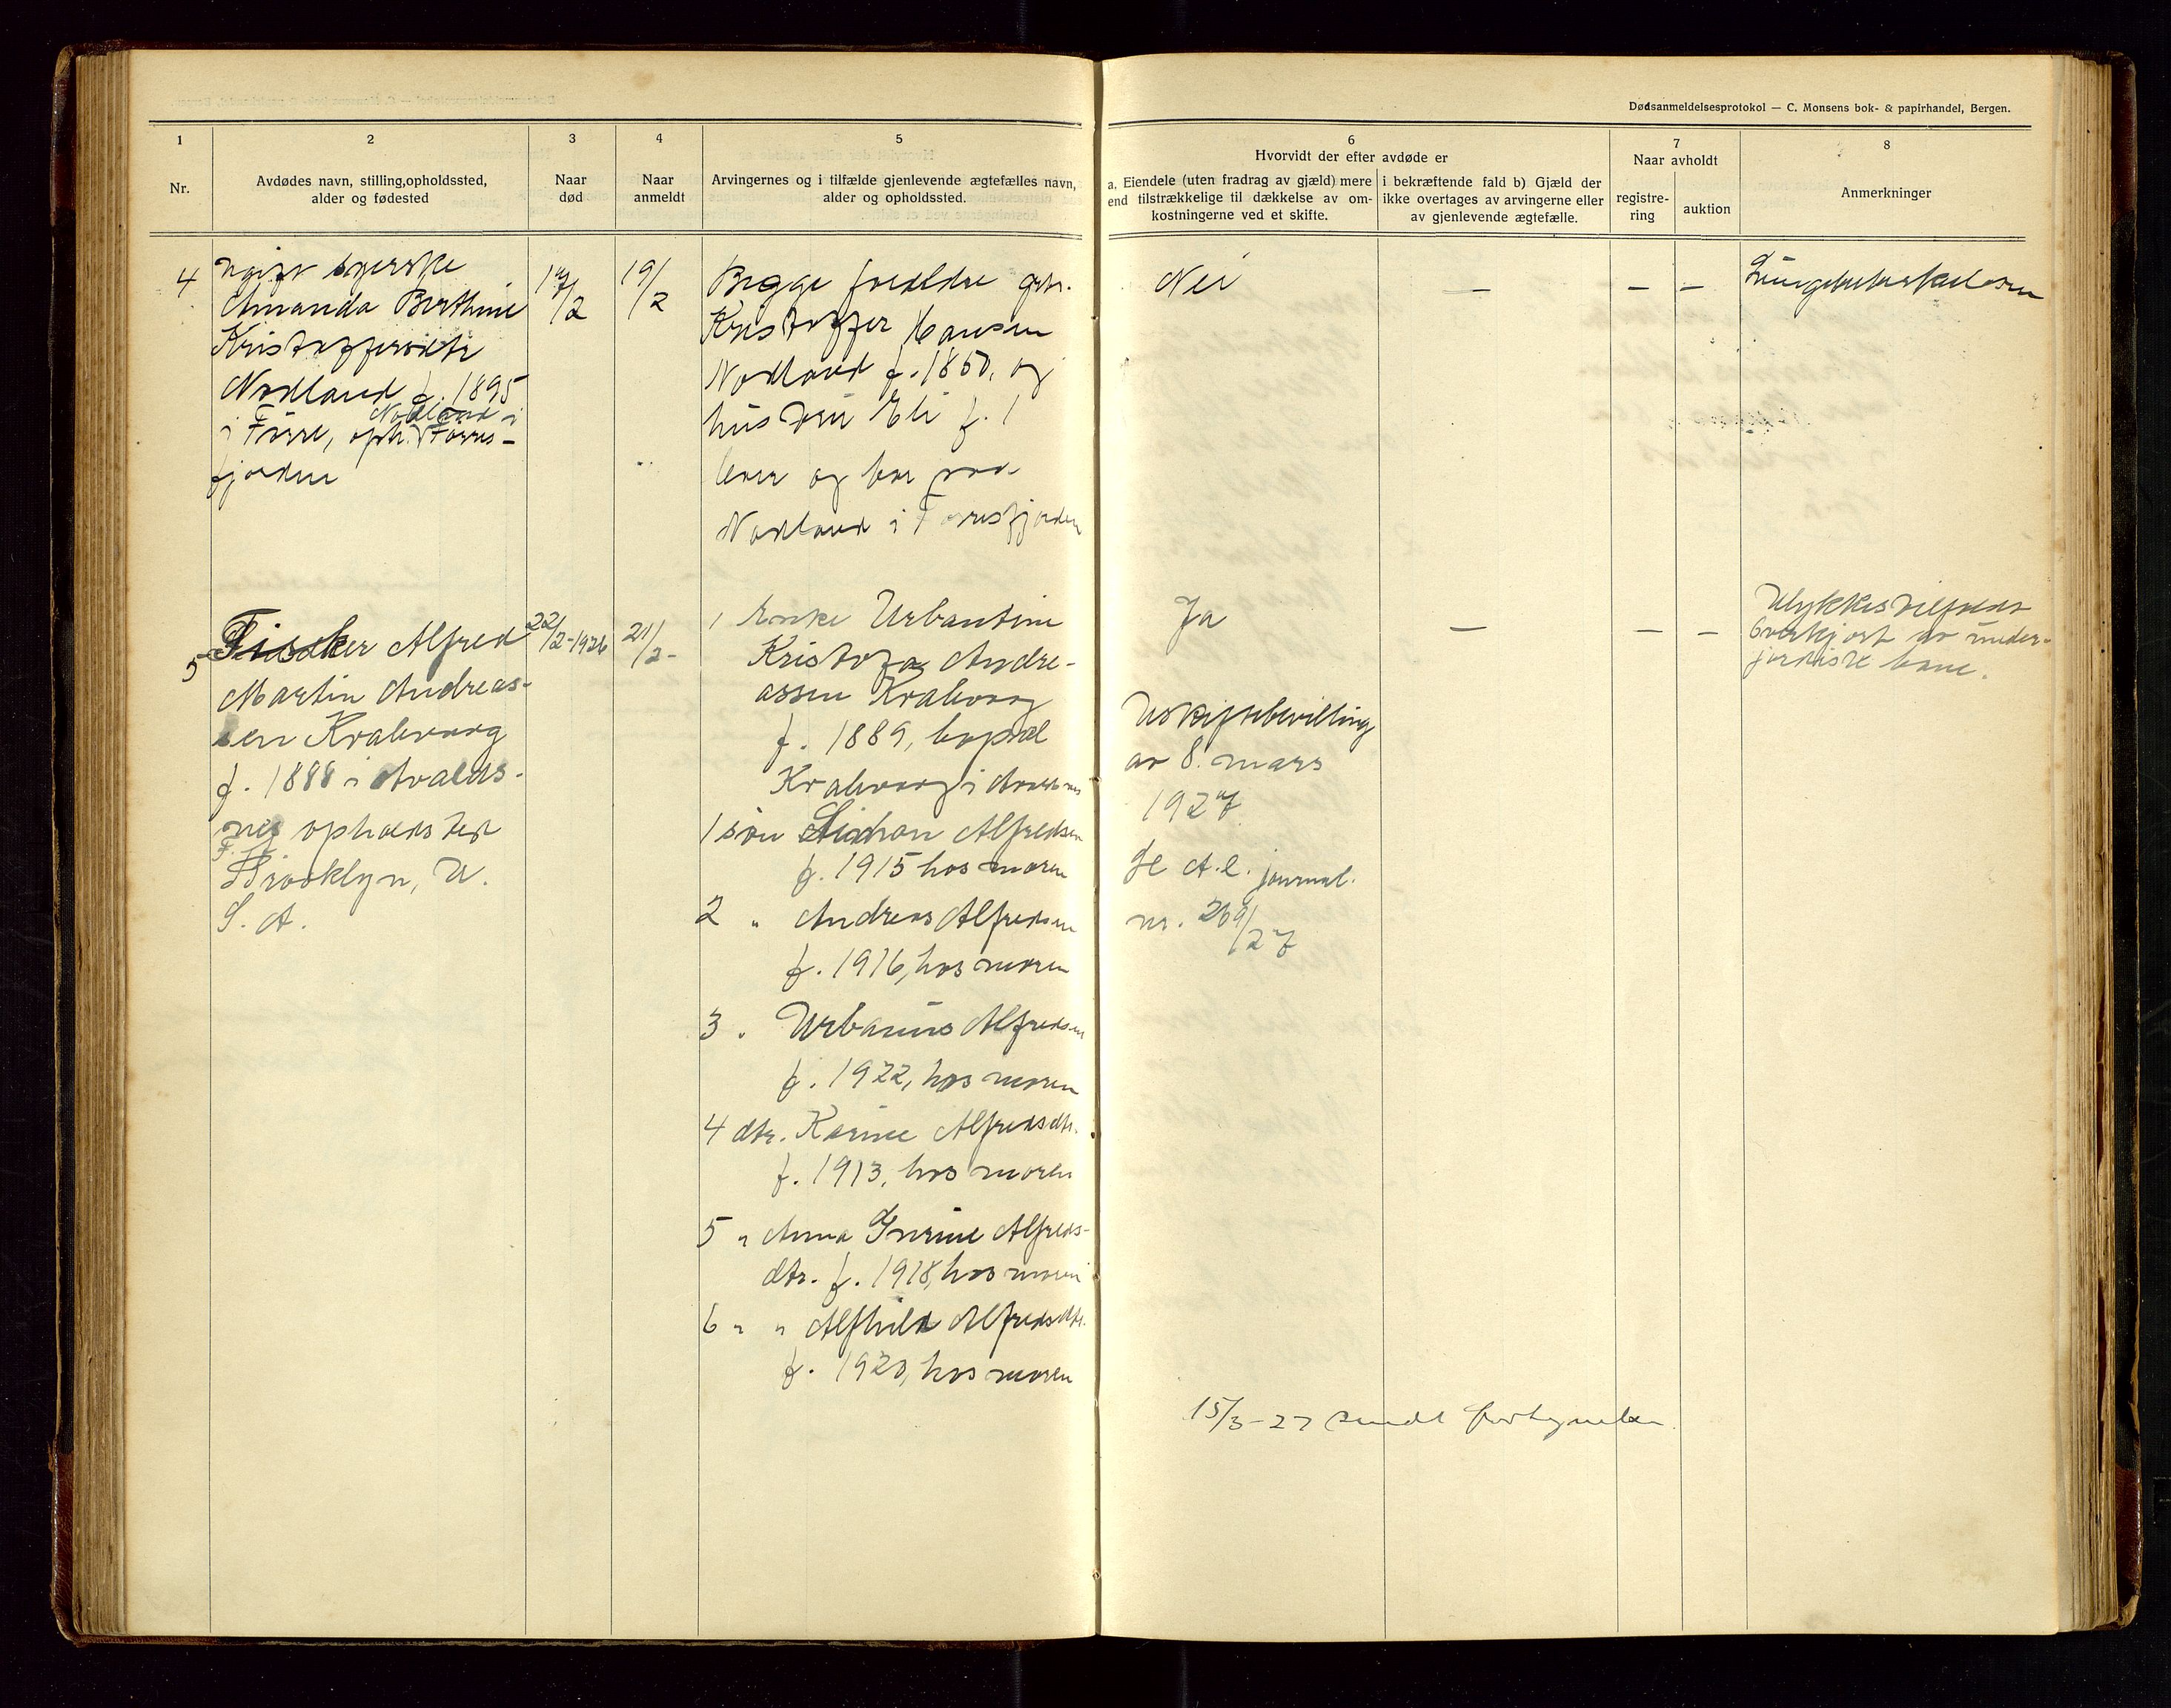 Dødsanmeldelsesprotokol — C. Monsens bok- & papirhandel, Bergen.
1
Nr.
2
Avdødes navn, stilling, opholdssted,
alder og fødested
3
Naar
død
4
Naar
anmeldt
5
Arvingernes og i tilfælde gjenlevende ægtefælles navn,
alder og opholdssted.
6
Hvorvidt der efter avdøde er
a. Eiendele (uten fradrag av gjæld) mere
end tilstrækkelige til dækkelse av om-
kostningerne ved et skifte.
i bekræftende fald b) Gjæld der
ikke overtages av arvingerne eller
av gjenlevende ægtefælle.
7
Naar avholdt
registre-
ring
auktion
8
Anmerkninger
4
Ugift syerske
Amanda Berthine
Kristoffersdtr
Nodland f. 1895
i Førre, oph. Nodland i Førres-
fjorden
17/2
19/2
Begge foreldre
Kristoffer Hansen
Nodland f. 1850, og
hustru Eli f. 1
lever og bor paa
Nodland i Førresfjorden
Nei
—
—
—
Lungetuberkulose
5
Fisker Alfred
Martin Andreas-
sen Kvalevaag
f. 1888 i Avalds-
nes opholdssted
Brooklyn, U.
S. A.
22/2-1926
21/2-
1 Enke Urbantine
Kristofa Andre-
assen Kvalevaag
f. 1889, bopæl
Kvalevaag i Avaldsnes
1 søn Alfredsen
f. 1915 hos moren
2 " Andreas Alfredsen
f. 1916, hos moren
3 " Urbanus Alfredsen
f. 1922, hos moren
4 dtr. Karine Alfredsdtr.
f. 1913, hos moren
5 " Anna Gurine Alfreds-
dtr. f. 1918, hos moren
6 " " Alfhild Alfredsdtr.
f. 1920, hos moren
Ja
Uskiftebevilling
av 8. mars
1927
journal.
nr. 269/27
—
—
—
Ulykkestilfælde
Overkjørt av under-
jordiske bane.
15/3-27 sendt